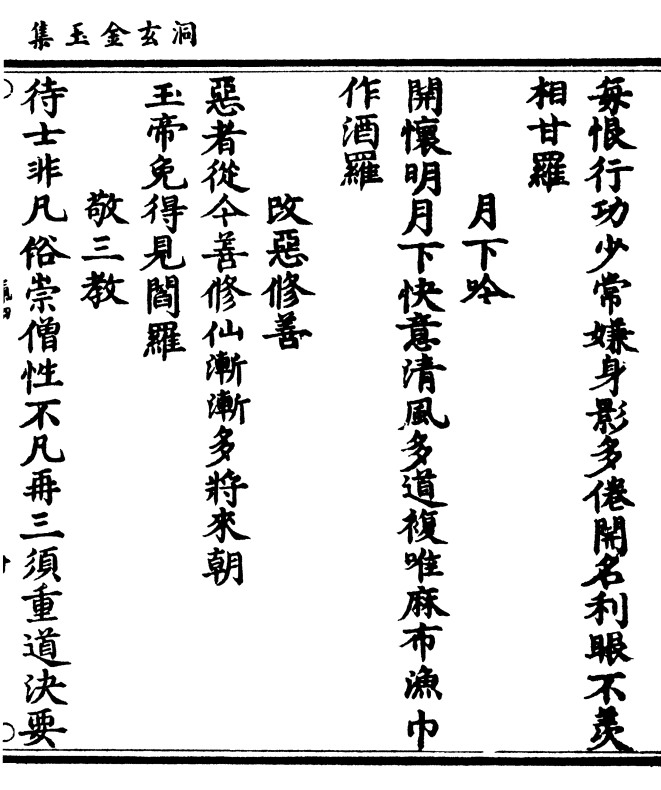 洞玄金玉集
每恨行功少常嫌身影多倦開名利眼不羨
相甘羅
月下吟
開懷明月下快意清風多道複唯麻布漁巾
作酒羅
改惡修善
惡者從今善修仙漸漸多將來朝
玉帝免得見閻羅
敬三教
待士非凡俗崇僧性不凡再三須重道決要